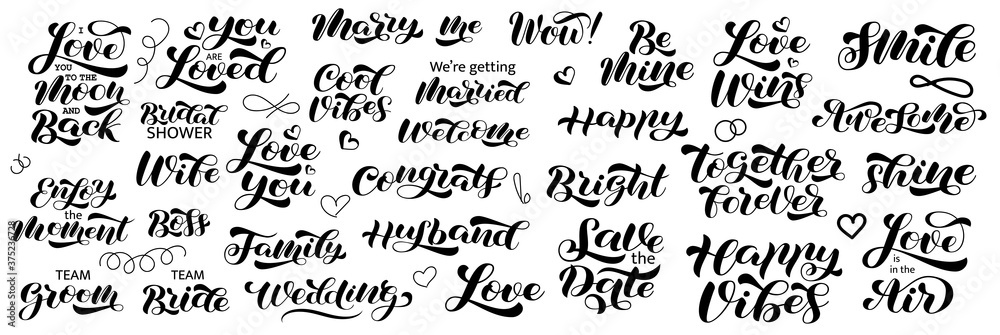 I
Love
YOU
TO THE
Moon
AND
Back
You
ARE
Loved
Marry me
Wow!
Be
Mine
Love
Wins
Smile
Cool
Vibes
We're getting
Married
Bridal
SHOWER
Welcome
Happy
Awesome
Wife
Love
you
Congrats
Bright
together
forever
shine
Enjoy
the
Moment
Boss
Family
Husband
Save
the
Date
Happy
Vibes
Love
is
in the
Air
TEAM
Groom
TEAM
Bride
Wedding
Love
Adobe Stock
375236728